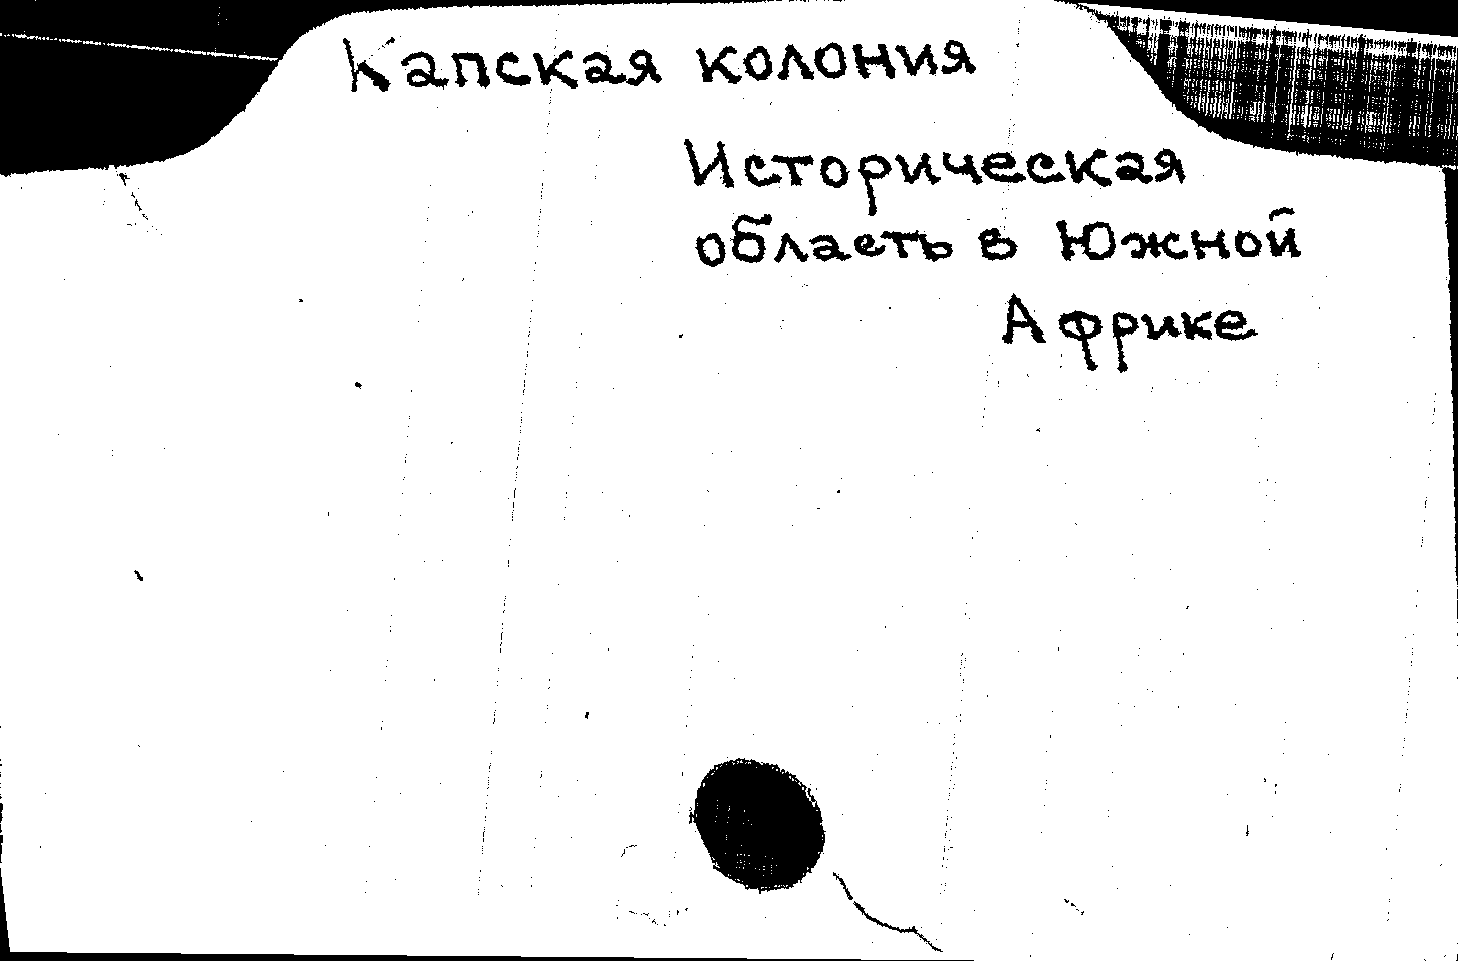 Капская колония
Историческая
область в Южной
Африке